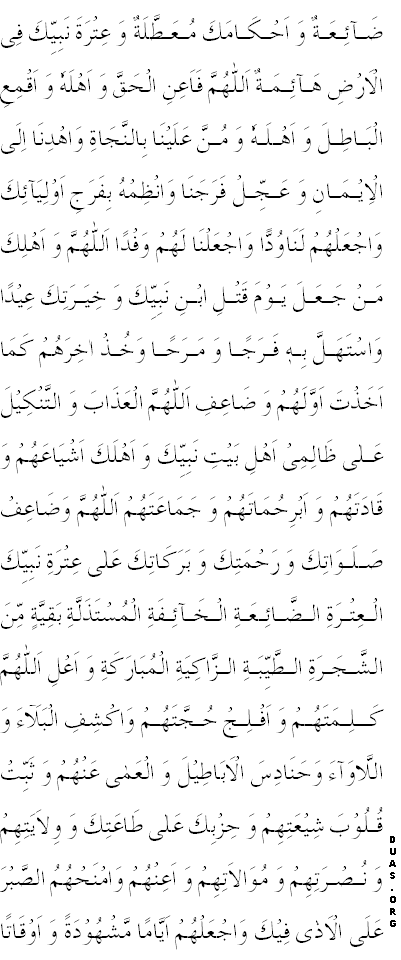 ضَآئِعَةٌ وَ اَحْكَامَكَ مُعَطَّلَةٌ وَ عِتْرَةَ نَبِيِّكَ فِى
الْاَرْضِ هَآئِمَةٌ اَللّٰهُمَّ فَاَعِنِ الْحَقَّ وَ اَهْلَهٗ وَ اَقْمِعِ
الْبَاطِلَ وَ اَهْلَهٗ وَ مُنَّ عَلَيْنَا بِالنَّجَاةِ وَاهْدِنَا اِلَى
الْاِيْمَانِ وَ عَجِّلْ فَرَجَنَا وَانْظِمْهُ بِفَرَجِ اَوْلِيَآئِكَ
وَاجْعَلْهُمْ لَنَاوُدًّا وَاجْعَلْنَا لَهُمْ وَفْدًا اَللّٰهُمَّ وَ اَهْلِكْ
مَنْ جَعَلَ يَوْمَ قَتْلِ ابْنِ نَبِيِّكَ وَ خِيَرَتِكَ عِيْدًا
وَاسْتَهَلَّ بِهٖ فَرَحًا وَ مَرَحًا وَخُذْ اٰخِرَهُمْ كَمَا
اَخَذْتَ اَوَّلَهُمْ وَ ضَاعِفِ اَللّٰهُمَّ الْعَذَابَ وَ التَّنْكِيْلَ
عَلٰى ظَالِمِىْ اَهْلِ بَيْتِ نَبِيِّكَ وَ اَهْلِكْ اَشْيَاعَهُمْ وَ
قَادَتَهُمْ وَ اَبْرِحُمَاتَهُمْ وَ جَمَاعَتَهُمْ اَللّٰهُمَّ وَضَاعِفْ
صَلَوَاتِكَ وَ رَحْمَتِكَ وَ بَرَكَاتِكَ عَلٰى عِتْرَةِ نَبِيِّكَ
الْعِتْرَةِ الضَّائِعَةِ الْخَآئِفَةِ الْمُسْتَذَلَّةِ بَقِيَّةٍ مِّنَ
الشَّجَرَةِ الطَّيِّبَةِ الزَّاكِيَةِ الْمُبَارَكَةِ وَ اَعْلِ اَللّٰهُمَّ
كَلِمَتَهُمْ وَ اَفْلِجْ حُجَّتَهُمْ وَاكْشِفِ الْبَلَآءَ وَ
اللَّاْوَآءَ وَحَنَادِسَ الْاَبَاطِيْلَ وَ الْعَمٰى عَنْهُمْ وَ ثَبِّتْ
قُلُوْبَ شِيْعَتِهِمْ وَ حِزْبِكَ عَلٰى طَاعَتِكَ وَ وِلَايَتِهِمْ
وَ نُصْرَتِهِمْ وَ مُوَالَاتِهِمْ وَ اَعِنْهُمْ وَامْنَحْهُمُ الصَّبْرَ
عَلَى الْاَذٰى فِيْكَ وَاجْعَلْهُمْ اَيَّامًا مَّشْهُوْدَةً وَ اَوْقَاتًا
DUAS.ORG